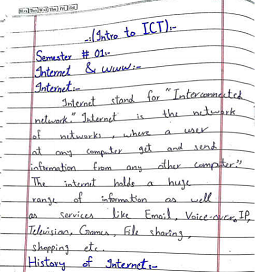 -:(Intro to ICT):-
Semester # 01:-
Internet & www:-
Internet:-
Internet stand for "Interconnected
network." Internet is the network
of networks, where a user
at any computer get and send
information from any other computer."
The internet holds a huge
range of information as well
as services like Email, Voice-over-IP,
Television, Games, File sharing,
shopping etc.
History of Internet:-